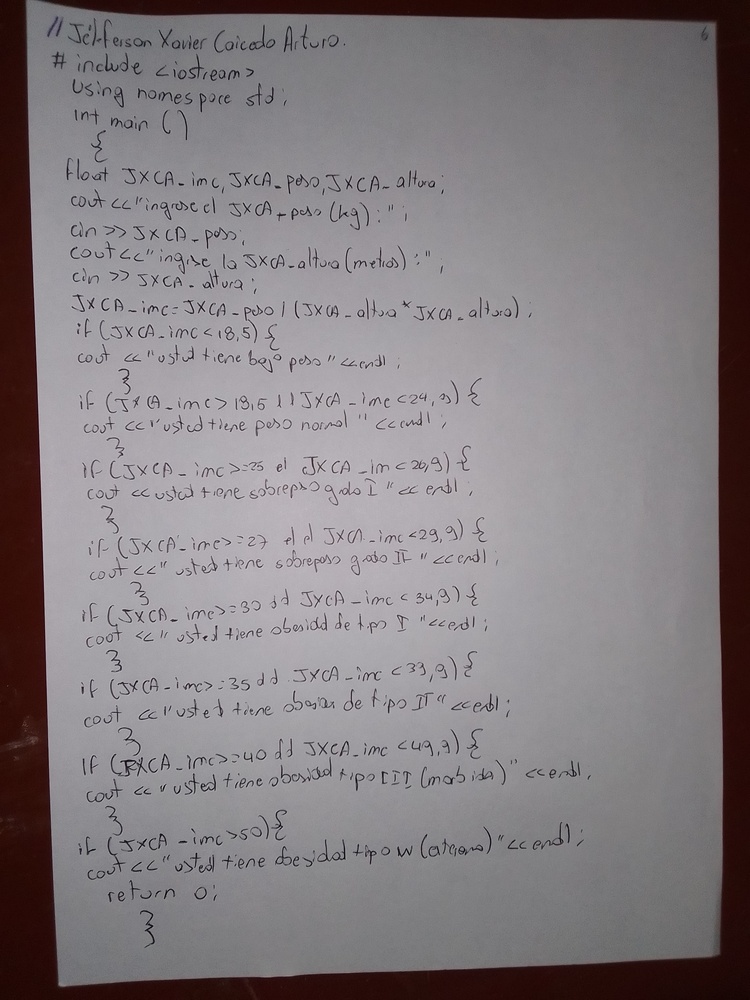 // Jéfferson Xavier Caicedo Arturo.
6
# include <iostream>
Using namespace std;
int main ()
{
float JXCA_imc, JXCA_peso, JXCA_altura;
cout <<"ingrese el JXCA_peso (kg) : " ;
cin >> JXCA_peso;
cout<<"ingrse la JXCA_altura (metros) :" ;
cin >> JXCA_altura;
JXCA_imc=JXCA_peso / (JXCA_altura*JXCA_altura) ;
if (JXCA_imc<18,5) {
cout <<"usted tiene bajo peso"<<endl ;
}
if (JXCA_imc> 18,5 || JXCA_imc<24,9) {
cout <<"usted tiene peso normal " <<endl ;
}
if (JXCA_imc>=25 el JXCA_im<26,9) {
cout <<usted tiene sobrepso grado I "<< endl ;
}
if (JXCA_imc>=27 el el JXCA_imc<29,9) {
cout <<" usted tiene sobrepeso grado II " <<endl ;
}
if (JXCA_imc>=30 dd JXCA_imc < 34,9) {
coot <<" usted tiene obesidd de tipo I "<<endl ;
}
if (JXCA_imc>=35 dd JXCA_imc <39,9) {
cout <<"usted tiene de tipo II" <<endl ;
}
If (JXCA_imc>=40 dd JXCA_imc <49,9) {
cout <<"usted tiene obesidad tipo III (morbida)" <<endl,
}
if (JXCA_imc>50) {
cout <<"usted tiene obesidad tipo "<<endl ;
return 0;
}